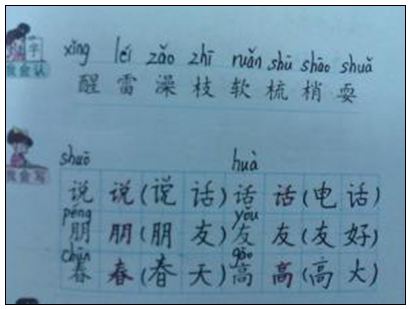 字
xǐng léi zǎo zhī ruǎn shū shāo shuǎ
我会认 醒 雷 澡 枝 软 梳 梢 耍
shuō huà
我会写 说 说(说 话) 话 话(电 话)
péng yǒu
朋 朋(朋 友) 友 友(友 好)
chūn gāo
春 春(春 天) 高 高(高 大)